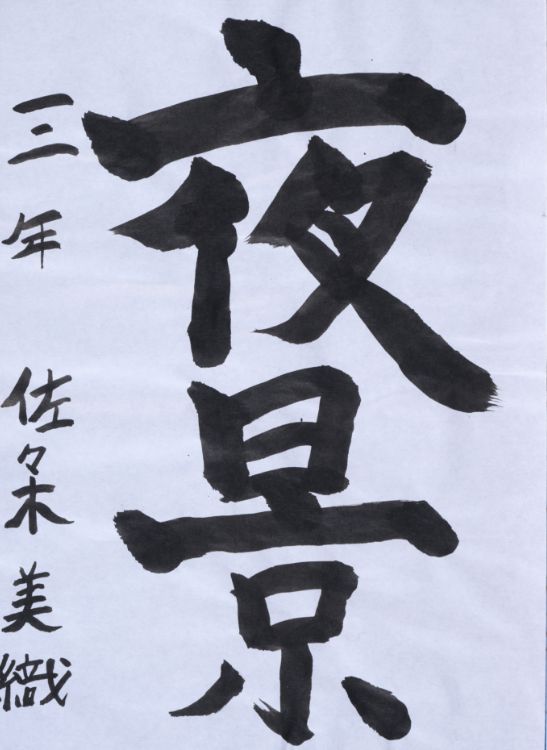 夜景
三年 佐々木美織